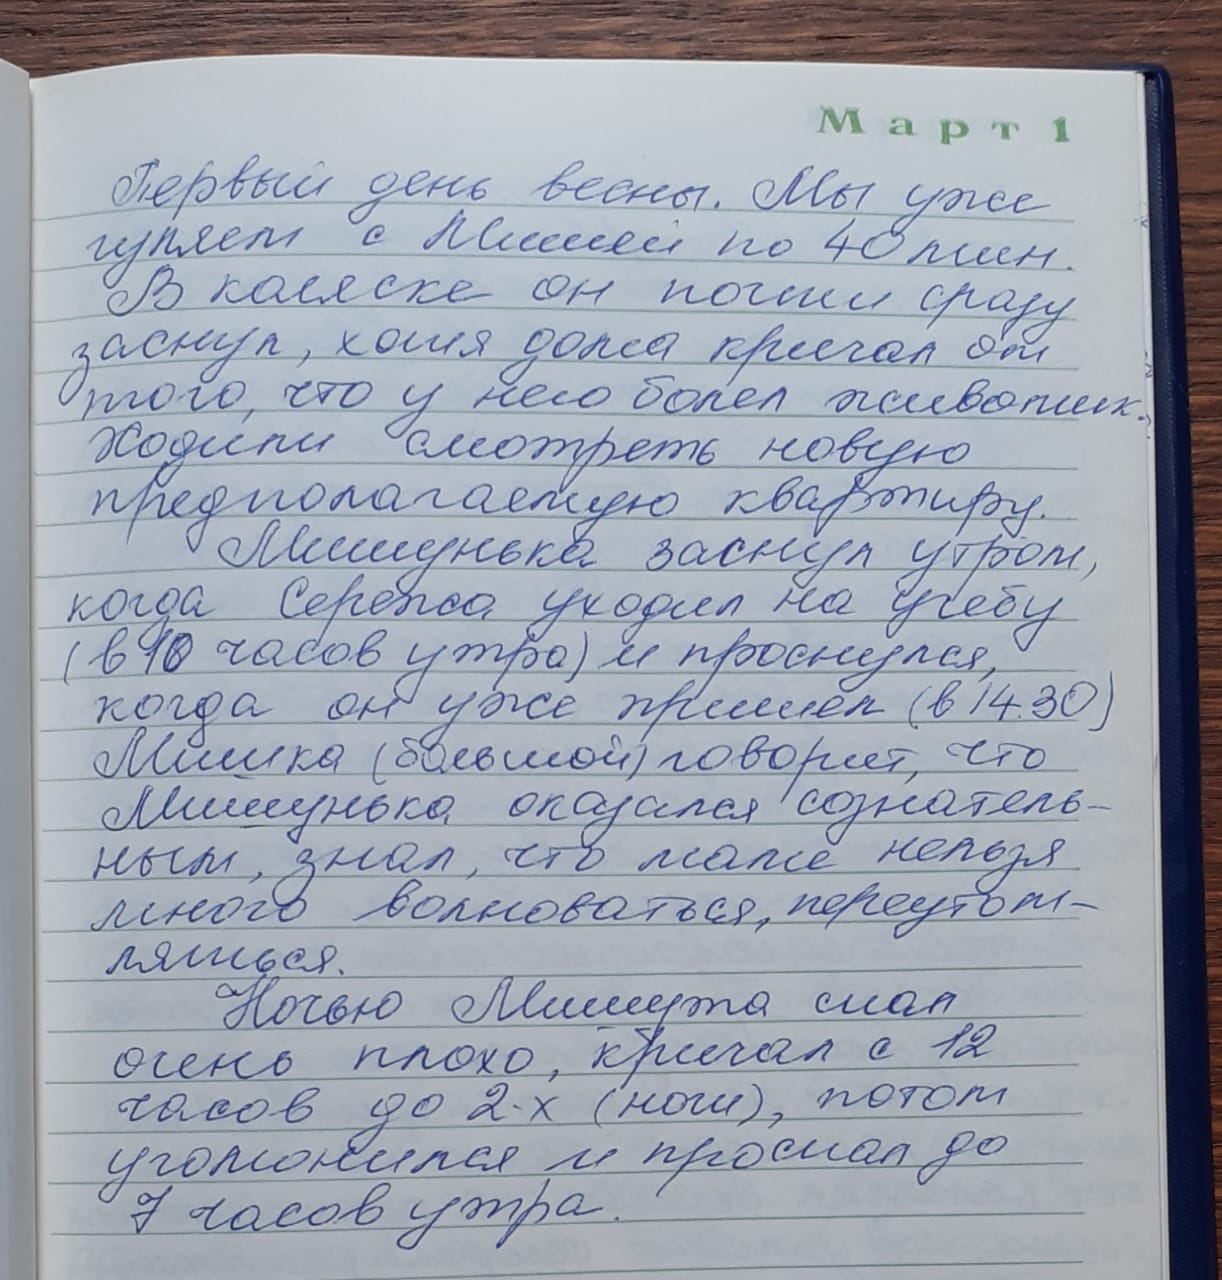 Март 1
Первый день весны. Мы уже
гуляем с Мишей по 40 мин.
В коляске он почти сразу
заснул, хотя дома кричал от
того, что у него болел животик.
Ходили смотреть новую
предполагаемую квартиру.
Мишунька заснул утром,
когда Сережа уходил на учебу
(в 10 часов утра) и проснулся,
когда он уже пришел (в 14.30)
Мишка (большой) говорит, что
Мишунька оказался сознатель-
ным, знал, что маме нельзя
много волноваться, переутом-
ляться.
Ночью Мишутка спал
очень плохо, кричал с 12
часов до 2-х (ночи), потом
угомонился и проспал до
7 часов утра.